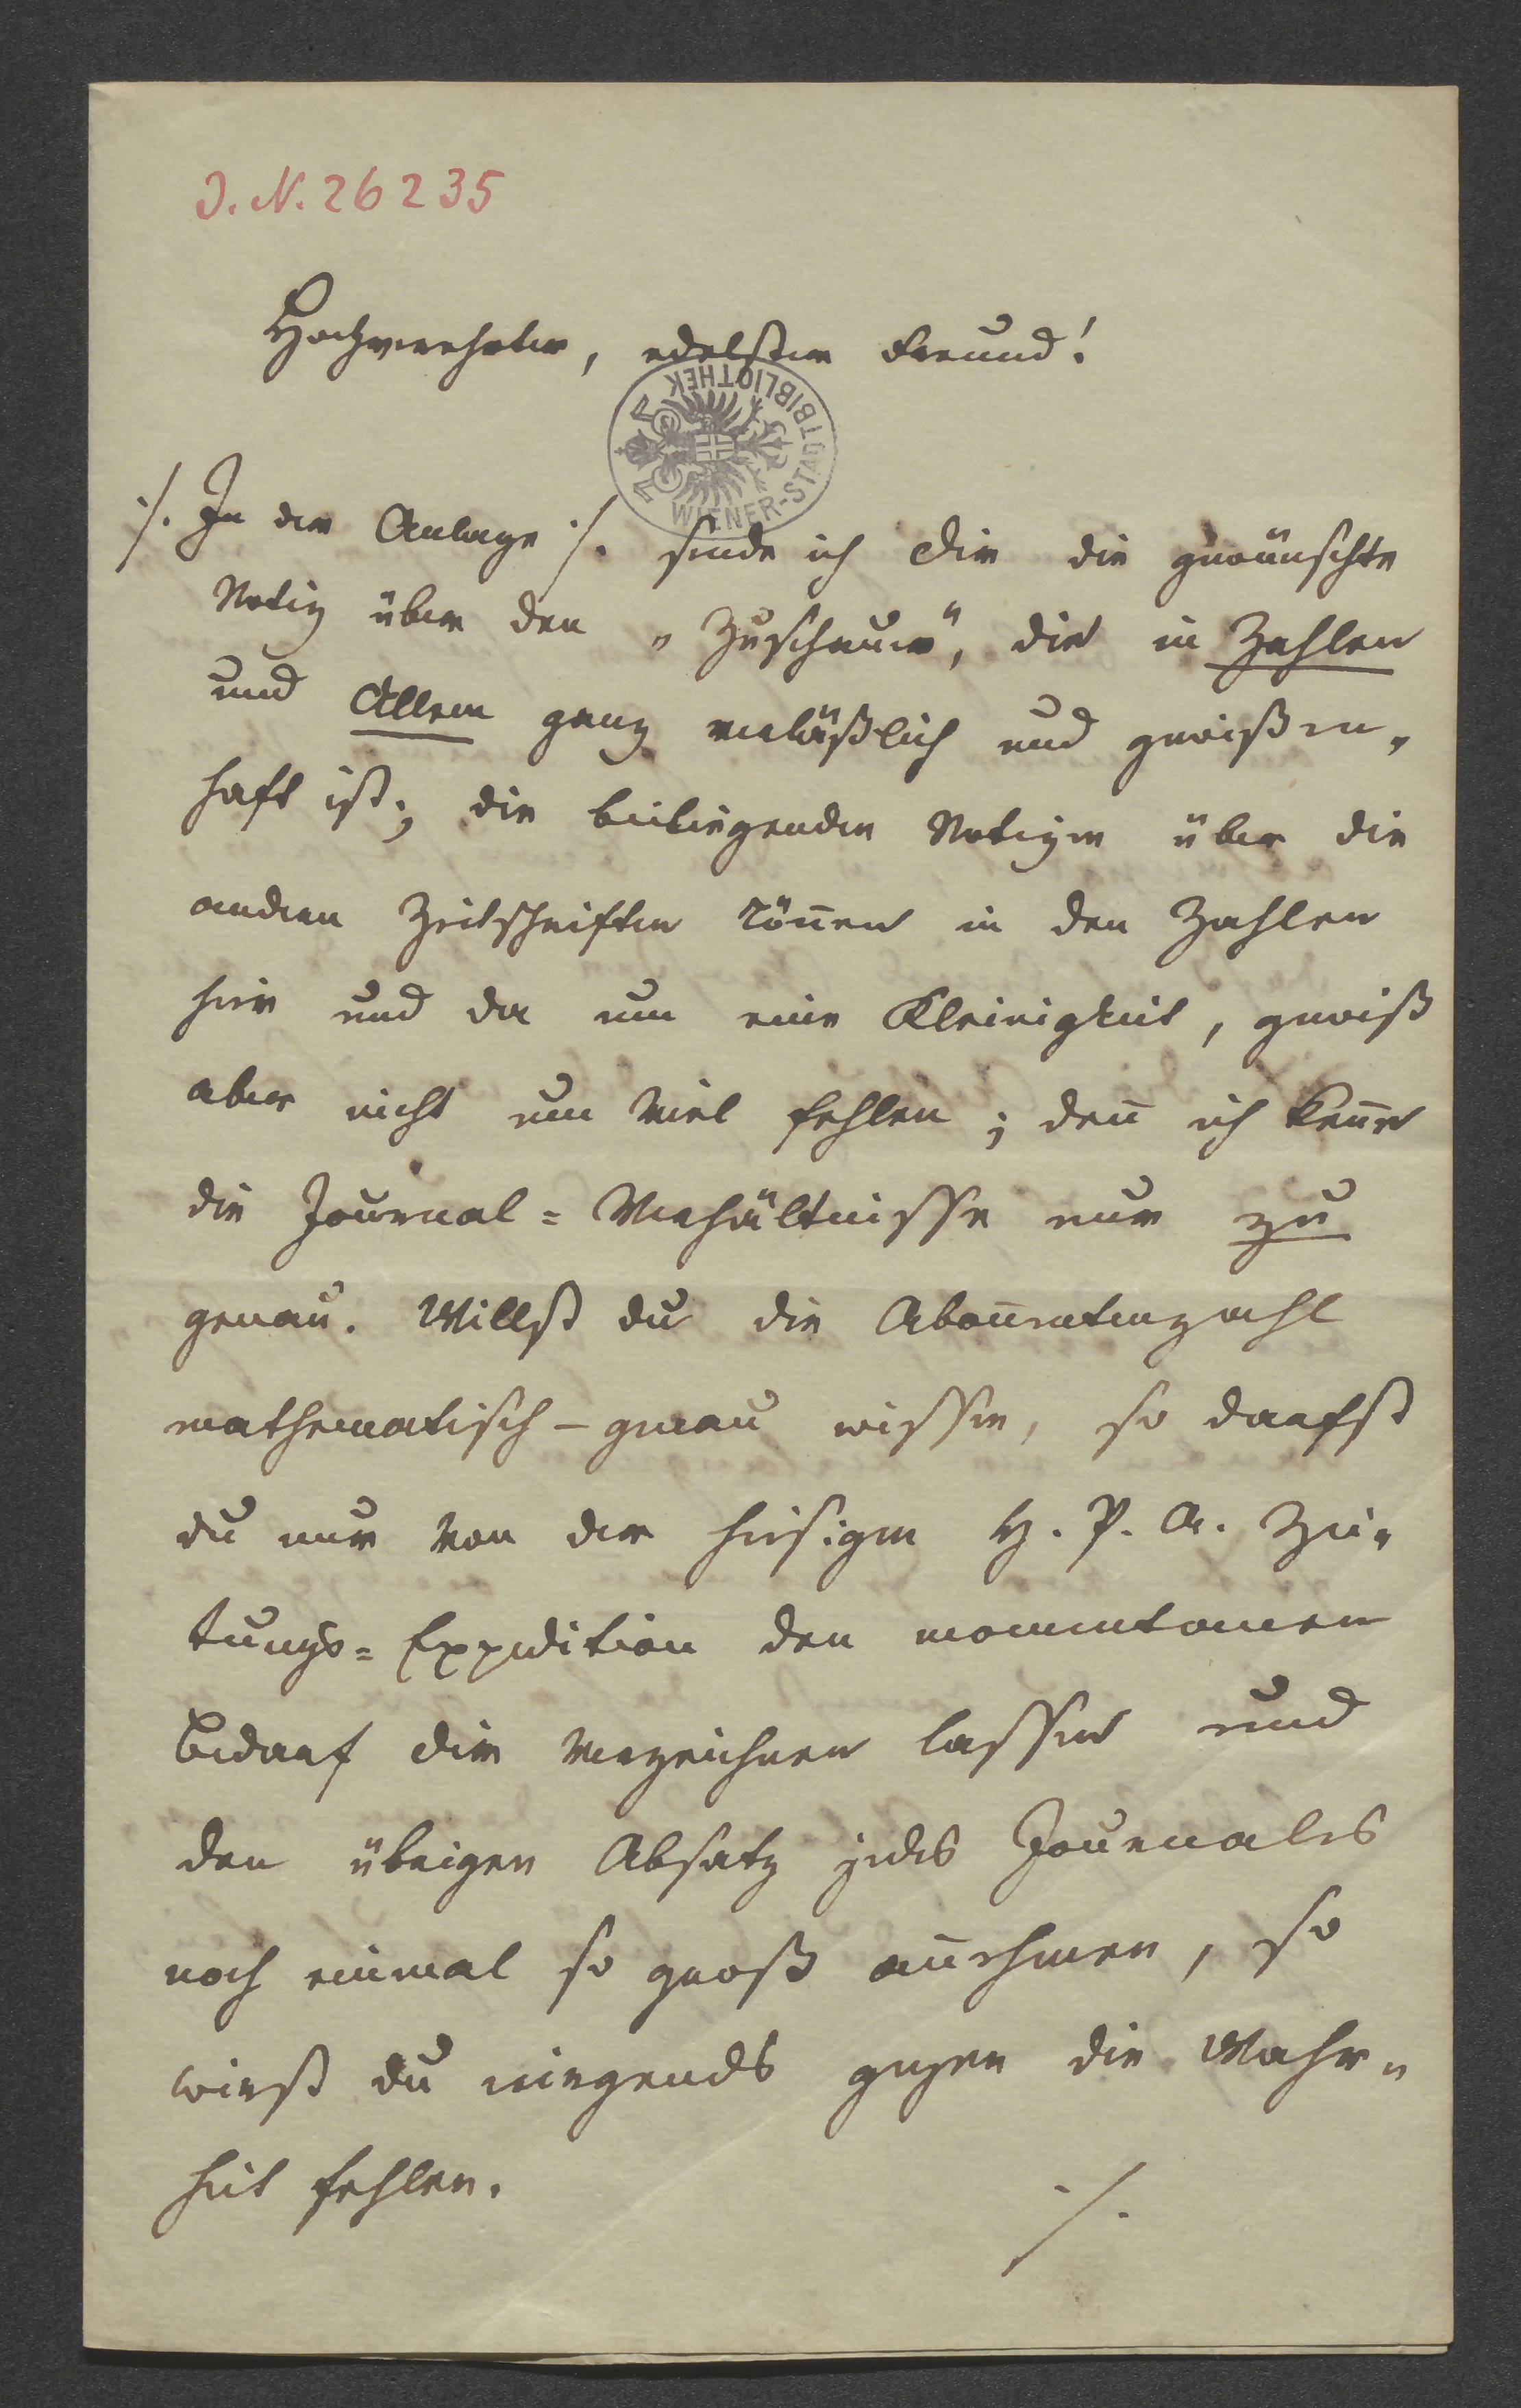 J. N. 26235
Hochverehrter, edelster Freund!
WIENER-STADTBIBLIOTHEK
./. In der Anlage ./. sende ich Dir die gewünschte
Notiz über den „Zuschauer", die in Zahlen
und Allem ganz verläßlich und gewißen„
haft ist; die beiliegenden Notizen über die
andren Zeitschriften können in den Zahlen
hier und da um eine Kleinigkeit, gewiß
aber nicht um Viel fehlen; den̄ ich ken̄e
die Journal=Verhältnisse nur zu
genau. Willst du die Abon̄entenzahl
mathematisch-genau wissen, so darfst
du nur von der hiesigen H. P. A. Zei„
tungs=Expedition den momentanen
Bedarf dir verzeichnen lassen und
den übrigen Absatz jedes Journales
noch einmal so groß an̄ehmen, so
wirst du nirgends gegen die Wahr„
heit fehlen.
./.